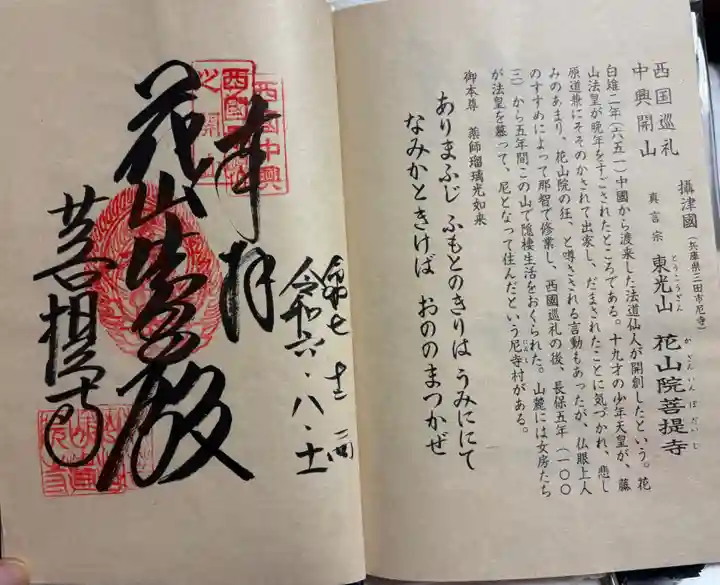 西国巡礼
中興開山
攝津國(兵庫県三田市尼寺)
真言宗 東光山 花山院菩提寺
とうこうざん
かざんいんぼだいじ
白雉二年(六五一)中國から渡来した法道仙人が開創したという。花
山法皇が晩年をすごされたところである。十九才の少年天皇が、藤
原道兼にそそのかされて出家し、だまされたことに気づかれ、悲し
みのあまり、花山院の狂、と噂さされる言動もあったが、仏眼上人
のすすめによって那智で修業し、西國巡礼の後、長保五年(一〇〇
三)から五年間この山で隠棲生活をおくられた。山麓には女房たち
が法皇を慕って、尼となって住んだという尼寺村がある。
にんじ
御本尊 薬師瑠璃光如来
ありまふじ ふもとのきりは うみににて
なみかときけば おののまつかぜ
令和六・八・十一
奉拝
西國中興
花山法皇殿
菩提寺